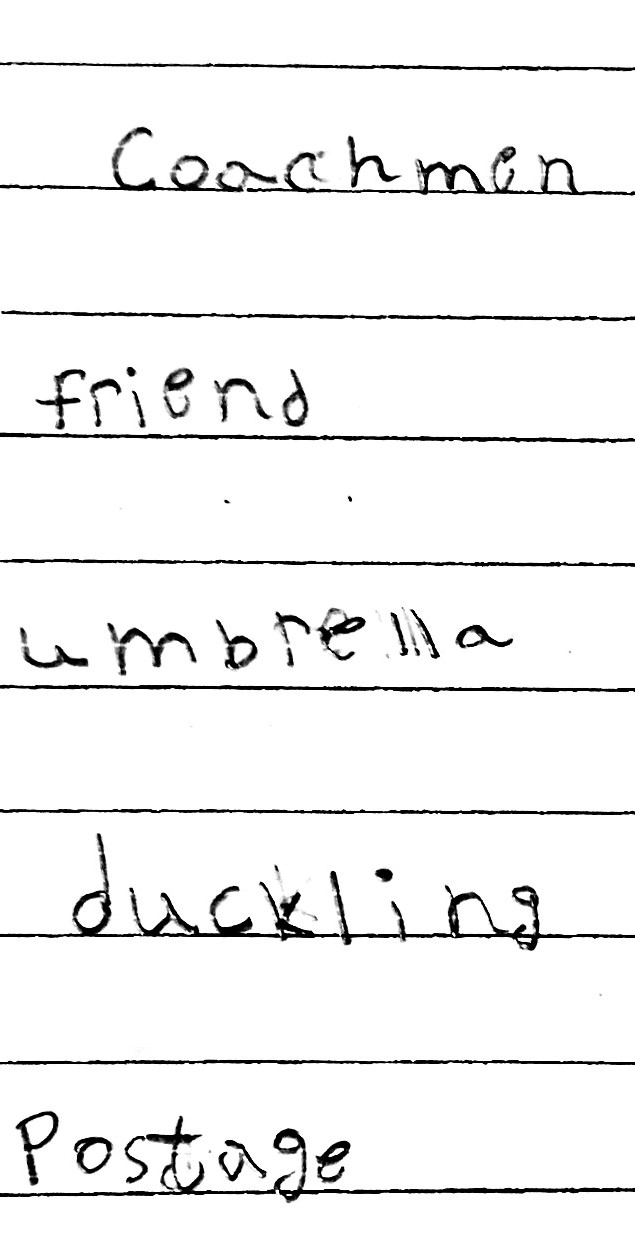 Coachmen
friend
umbrella
duckling
Postage